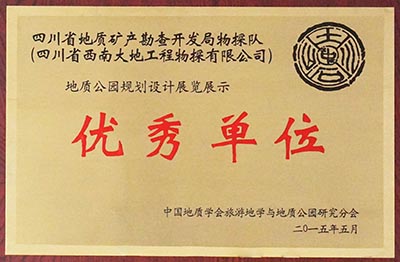 四川省地质矿产勘查开发局物探队
(四川省西南大地工程物探有限公司)
地质公园规划设计展览展示
优秀单位
中国地质学会旅游地学与地质公园研究分会
二〇一五年五月